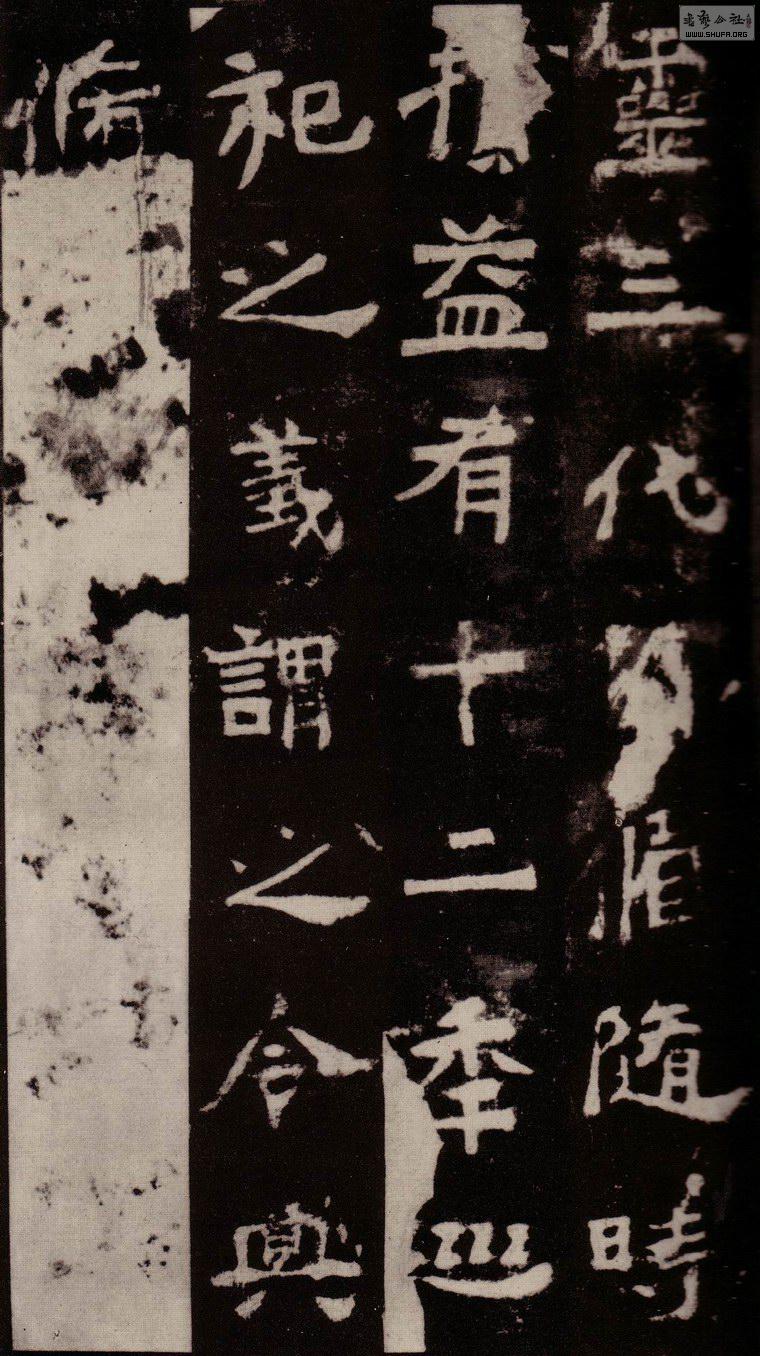 書藝公社
WWW.SHUFA.ORG
靈三代循隨時
損益有十二秊巡
祀之義謂之令典
脩